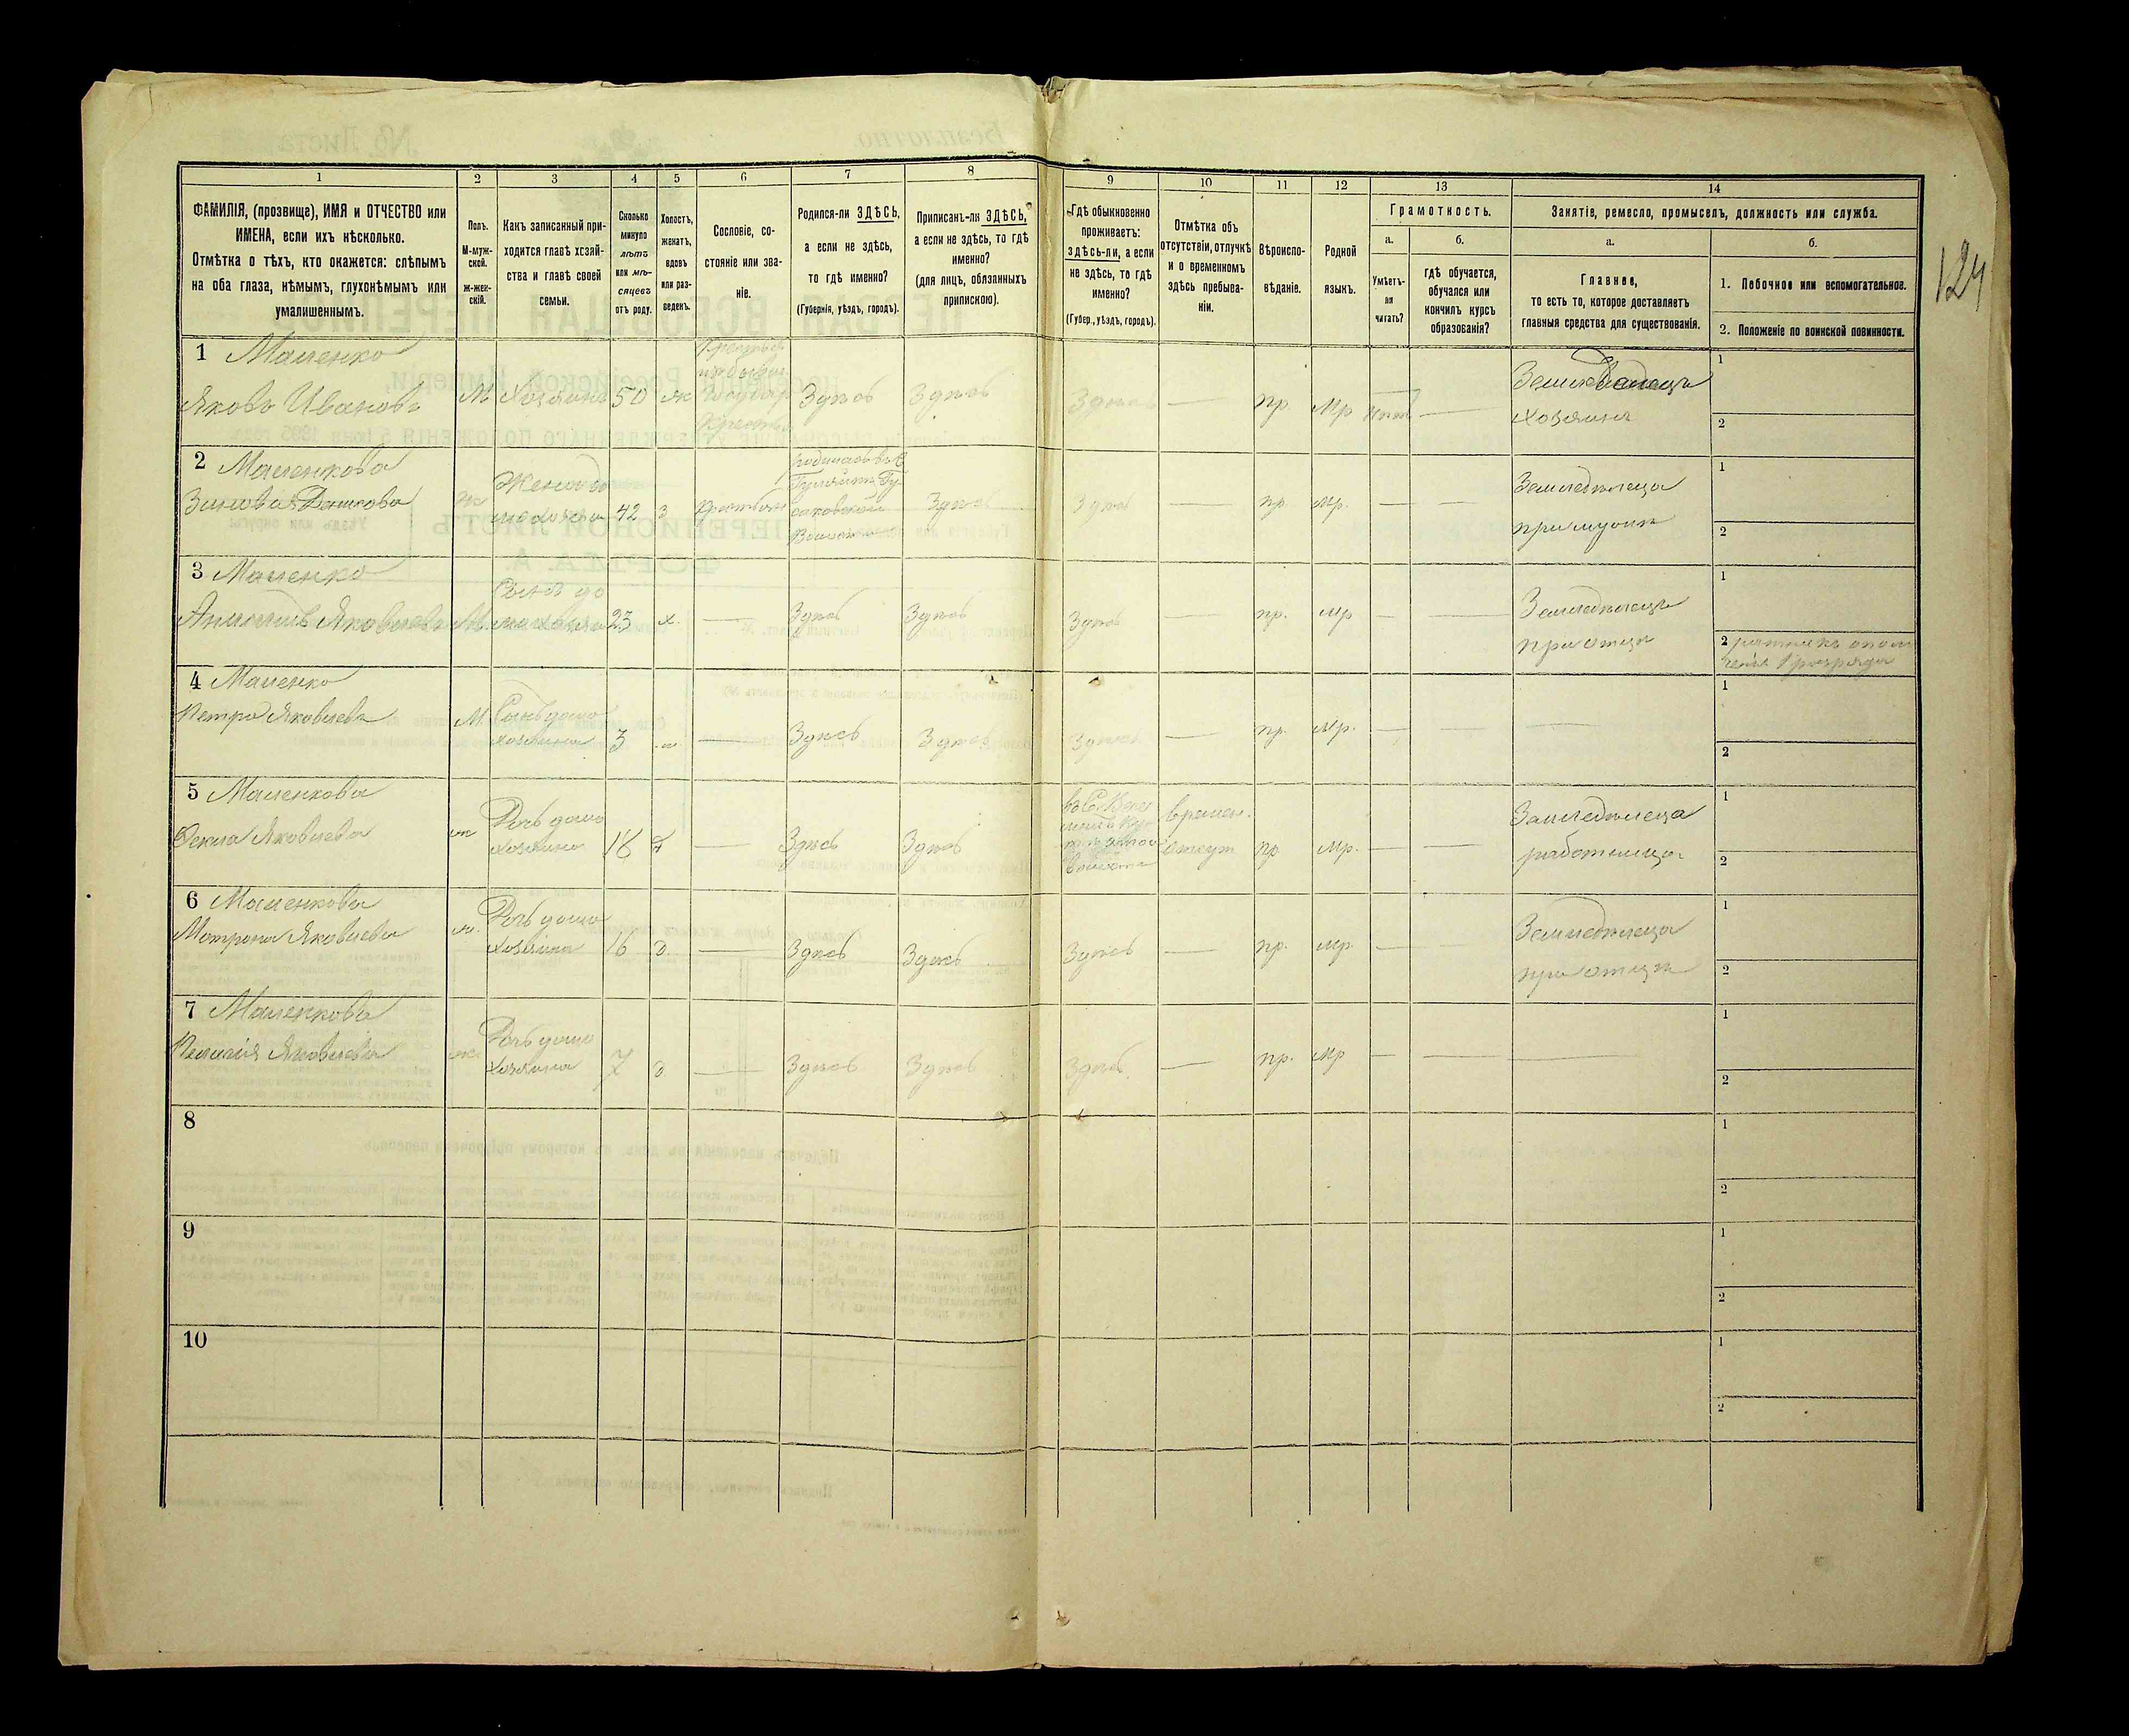 124
1
2
3
4
5
6
7
8
9
10
11
12
13
14
ФАМИЛІЯ, (прозвище), ИМЯ и ОТЧЕСТВО или
ИМЕНА, если ихъ нѣсколько.
Отмѣтка о тѣхъ, кто окажется: слѣпымъ
на оба глаза, нѣмымъ, глухонѣмымъ или
умалишеннымъ.
Полъ.
М-муж-
ской.
ж-жен-
скій.
Какъ записанный при-
ходится главѣ хозяй-
ства и главѣ своей
семьи.
Сколько
минуло
лѣтъ
или мѣ-
сяцевъ
отъ роду.
Холостъ,
женатъ,
вдовъ
или раз-
веденъ.
Сословіе, со-
стояніе или зва-
ніе.
Родился-ли ЗДѢСЬ,
а если не здѣсь,
то гдѣ именно?
(Губернія, уѣздъ, городъ).
Приписанъ-ли ЗДѢСЬ,
а если не здѣсь, то гдѣ
именно?
(для лицъ, обязанныхъ
припискою).
Гдѣ обыкновенно
проживаетъ:
здѣсь-ли, а если
не здѣсь, то гдѣ
именно?
(Губер., уѣздъ, городъ).
Отмѣтка объ
отсутствіи, отлучкѣ
и о временномъ
здѣсь пребыва-
ніи.
Вѣроиспо-
вѣданіе.
Родной
языкъ.
Грамотность.
а.
б.
Умѣетъ-
ли
читать?
гдѣ обучается,
обучался или
кончилъ курсъ
образованія?
Занятіе, ремесло, промыселъ, должность или служба.
а.
б.
Главное,
то есть то, которое доставляетъ
главныя средства для существованія.
1. Побочное или вспомогательное.
2. Положеніе по воинской повинности.
1 Маленко
Яковъ Ивановъ
М Хозяинъ 50 ж Здѣсь Здѣсь Здѣсь — пр. Мр нѣтъ —
Землевладецъ
Хозяинъ
1
2
2 Маленкова
42 з Здѣсь Здѣсь — пр. мр. — —
Земледѣлеца
при мужѣ
1
2
3 Маленко
Яковлевъ М. 23 х. — Здѣсь Здѣсь Здѣсь — пр. мр — —
Сынъ до
Земледѣлецъ
при отцѣ
1
2 ратникъ опол
ченія 1 разряда
4 Маленко
Петро Яковлевъ М. Сынъ домо
хозяина 3 — Здѣсь Здѣсь Здѣсь — пр. мр. — — —
1
2
5 Маленкова
Фекла Яковлева ж Дочь домо
хозяина 18 — Здѣсь Здѣсь времен. пр мр. — —
Земледѣлеца
работница
1
2
6 Маленкова
Матрона Яковлева ж. Дочь домо
хозяина 16 д. — Здѣсь Здѣсь Здѣсь — пр. мр. — —
Земледѣлеца
при отцѣ
1
2
7 Маленкова
Пелагія Яковлева ж. Дочь домо
хозяина 7 д — Здѣсь Здѣсь Здѣсь — пр. мр — — —
1
2
8
1
2
9
1
2
10
1
2